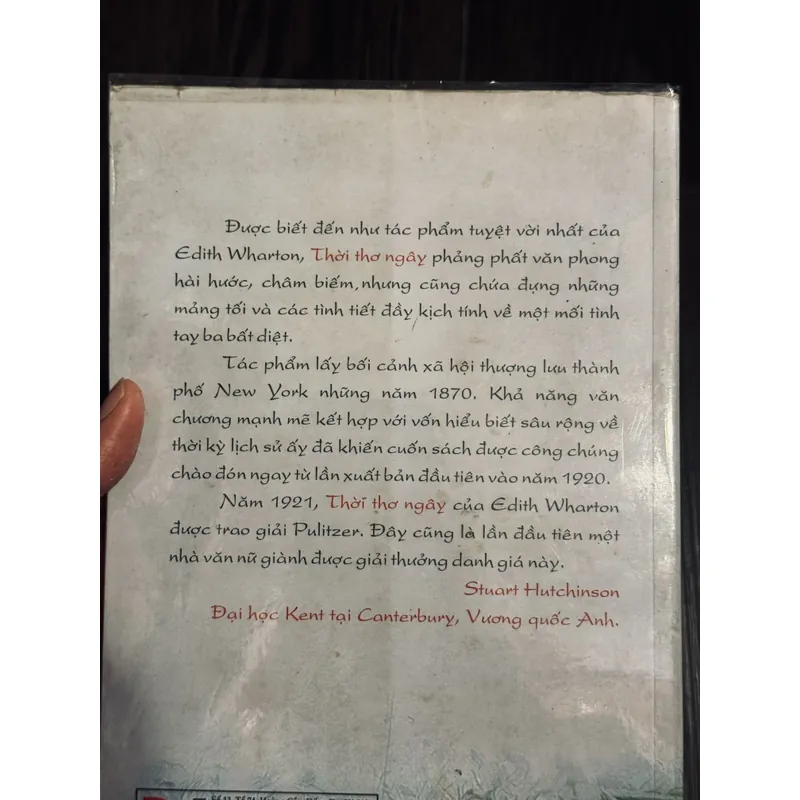 Được biết đến như tác phẩm tuyệt vời nhất của
Edith Wharton, Thời thơ ngây phảng phất văn phong
hài hước, châm biếm, nhưng cũng chứa đựng những
mảng tối và các tình tiết đầy kịch tính về một mối tình
tay ba bất diệt.
Tác phẩm lấy bối cảnh xã hội thượng lưu thành
phố New York những năm 1870. Khả năng văn
chương mạnh mẽ kết hợp với vốn hiểu biết sâu rộng về
thời kỳ lịch sử ấy đã khiến cuốn sách được công chúng
chào đón ngay từ lần xuất bản đầu tiên vào năm 1920.
Năm 1921, Thời thơ ngây của Edith Wharton
được trao giải Pulitzer. Đây cũng là lần đầu tiên một
nhà văn nữ giành được giải thưởng danh giá này.
Stuart Hutchinson
Đại học Kent tại Canterbury, Vương quốc Anh.